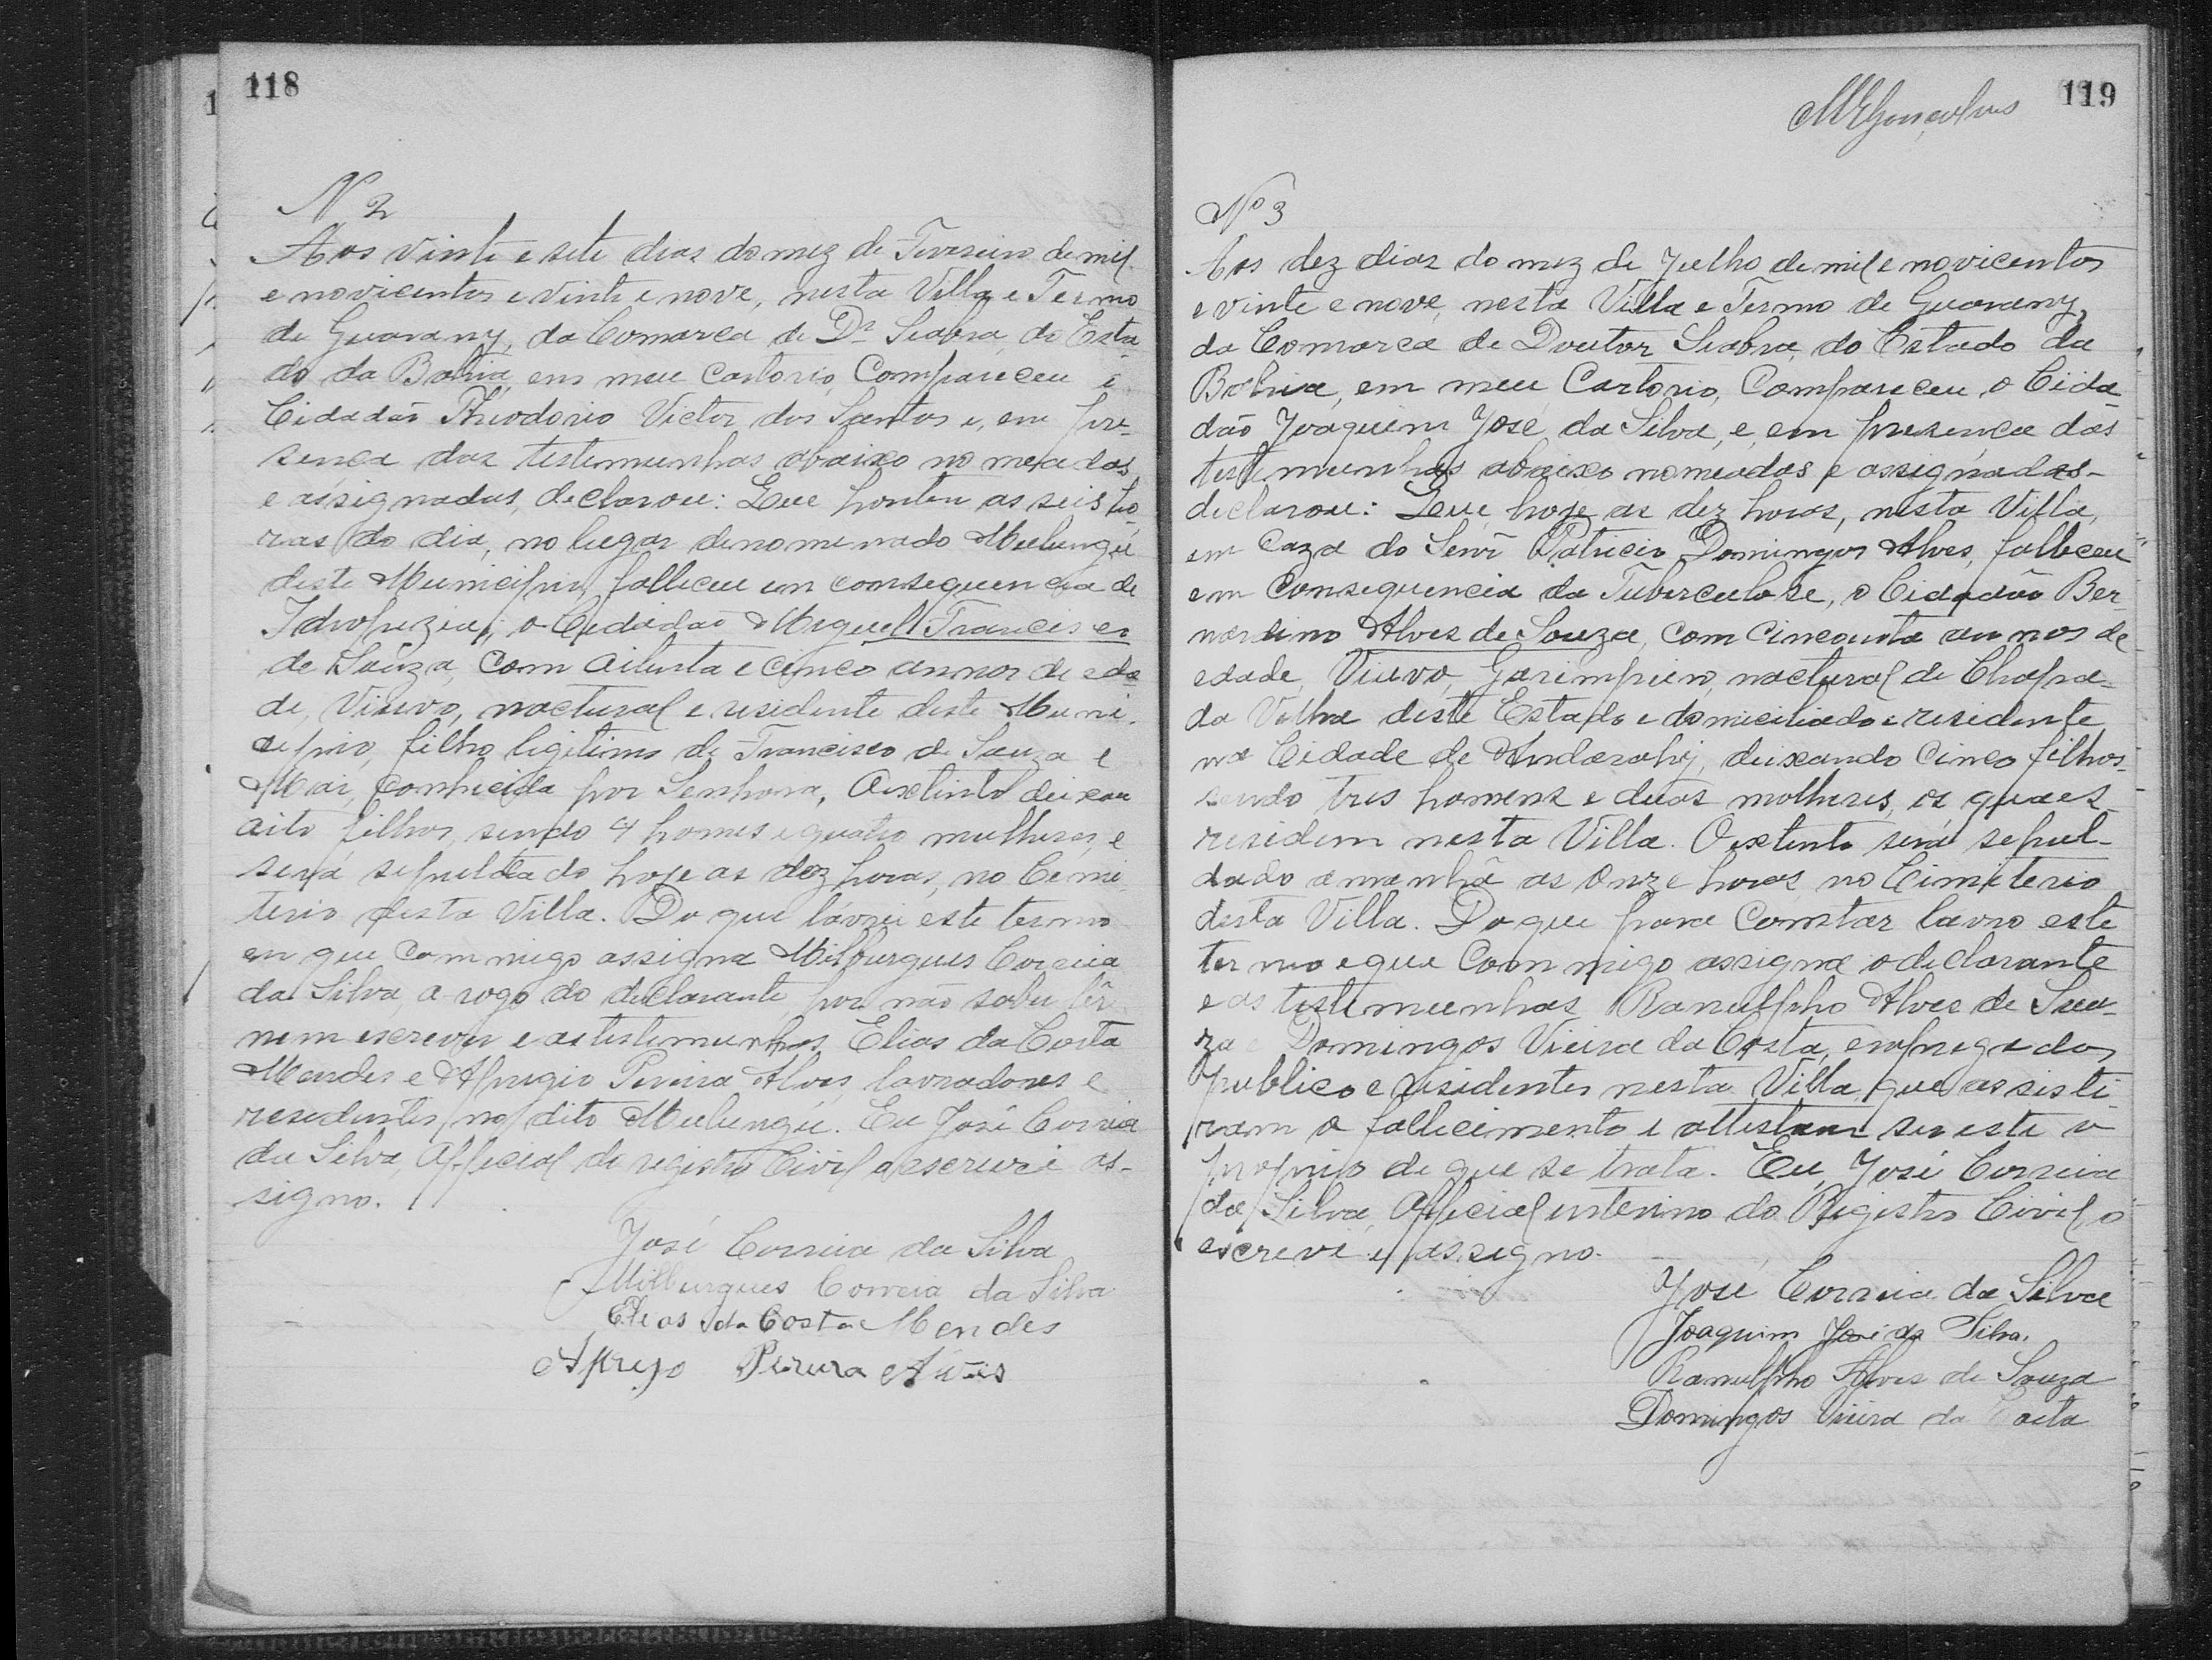 118
N 2
Aos vinte e sete dias do mez de Fevereiro de mil
e novicentos e vinte e nove, nesta Villa e Termo
de Guarany, da Comarca de Dr. Seabra, do Esta-
do da Bahia, em meu Cartorio, Compareceu o
Cidadão Theodorio Victor dos Santos e, em pre-
sença das testemunhas abaixo nomeadas
e assignadas, declarou: Que hontem as seis ho-
ras do dia, no lugar denomenado Mulungú
deste Municipio, falleceu em consequencia de
Idropezia, o Cidadão Miguel Francisco
de Souza, com oitenta e cinco annos de eda-
de, Viuvo, nactural e residente deste Muni-
cipio, filho legitimo de Francisco de Souza e
Mãi, Conhecida por Senhora. O extinto deixou
oito filhos, sendo 4 homes e quatro mulheres, e
será sepultado hoje as dez horas, no Cemi-
terio desta Villa. Do que lavrei este termo
em que Commigo assigna Milburgues Correia
da Silva, a rogo do declarante, por não saber lêr
nem escrever e as testemunhas, Elias da Costa
Mendes e Aprigio Pereira Alves, lavradores e
residentes no dito Mulungú. Eu José Correia
da Silva, Official do registro Civil o escrevi e as-
signo.
José Correia da Silva
Milburgues Correia da Silva
Elias da Costa Mendes
Aprijo Pereira Alves
MEGonçalves
119
Nº 3
Aos dez dias do mez de Julho de mil e novicentos
e vinte e nove, nesta Villa e Termo de Guarany,
da Comarca de Doutor Seabra, do Estado da
Bahia, em meu Cartorio, Compareceu o Cida-
dão Joaquim José da Silva, e, em presença das
testemunhas abaixo nomeadas e assignadas-
declarou: Que, hoje as dez horas, nesta Villa,
em Caza do Senr Patricio Domingos Alves, falleceu
em Consequencia da Tuberculose, o Cidadão Ber-
nardino Alves de Souza, Com Cincoenta annos de
edade, Viuvo, Garimpeiro, nactural de Chapa-
da Velha deste Estado e domiciliado e residente
na Cidade de Andarahy, deixando Cinco filhos-
sendo tres homens e duas molheres, os quaes
residem nesta Villa. O extinto será sepul-
dado amanhã as Onze horas no Cimiterio
desta Villa. Do que para Constar lavro este
termo e que Commigo assigna o declarante
e as testemunhas Ranulpho Alves de Sou-
za e Domingos Vieira da Costa, empregados
publico e residentes nesta Villa, que assisti-
ram o fallecimento e attestam ser este o
proprio de que se trata. Eu, José Correia
da Silva, Official interino do Registro Civil o
escrevi e assigno.
José Correia da Silva
Joaquim José da Silva.
Ranulpho Alves de Souza
Domingos Vieira da Costa